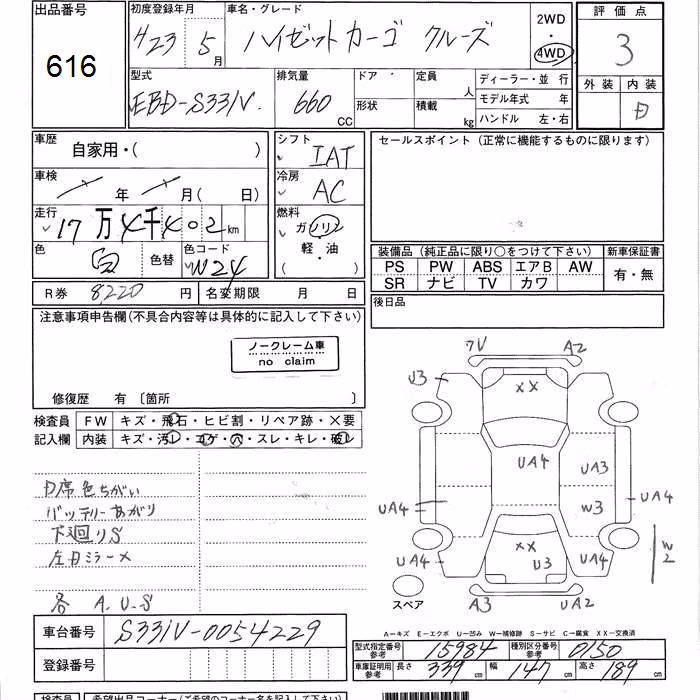 出品番号
616
初度登録年月
H23 5月
車名・グレード
ハイゼットカーゴ クルーズ
2WD
・
4WD
評価点
3
外装 内装
D
型式
EBD-S331V
排気量
660
CC
ドア・
形状
定員
人
積載
kg
ディーラー・並行
モデル年式 年
ハンドル 左・右
車歴
自家用・( )
シフト
IAT
セールスポイント (正常に機能するものに限ります)
車検
年 月( 日)
冷房
AC
走行
17万4千402km
燃料
ガソリン
軽・油
( )
色
白
色替
色コード
W24
装備品 (純正品に限り○をつけて下さい)
新車保証書
PS PW ABS エアB AW
SR ナビ TV カワ
有・無
R券 8220円
名変期限 月 日
後日品
注意事項申告欄(不具合内容等は具体的に記入して下さい)
ノークレーム車
no claim
修復歴 有 〔箇所 〕
検査員
記入欄
FW キズ・飛石・ヒビ割・リペア跡・×要
内装 キズ・汚レ・コゲ・穴・スレ・キレ・破レ
D席色ちがい
バッテリーあがり
下廻りS
左ドミラーメ
各 A.U.S
A2
U3
XX
UA4
UA3
UA4
W3
UA4
UA4
XX
U3
UA4
W2
A3
UA2
スペア
A―キズ E―エクボ U―凹み W―補修跡 S―サビ C―腐食 XX―交換済
車台番号
S331V-0054229
登録番号
型式指定番号
参考
15984
種別区分番号
参考
0150
車庫証明用
参考
長さ 339cm
幅 147cm
高さ 189cm
検査員
希望出品コーナー(ご希望のコーナー名を記入下さい)